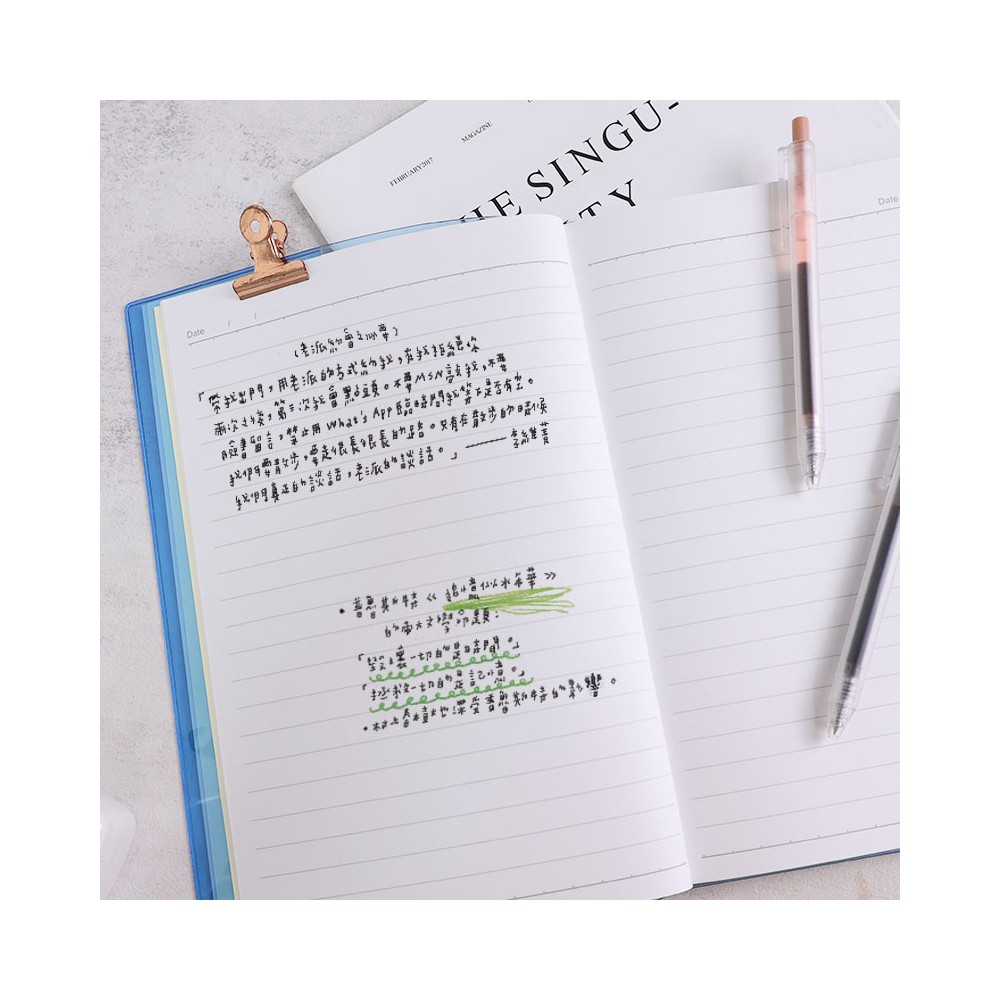 FEBRUARY2017
MAGAZINE
HE SINGU-
TY
Date / /
Date
(老派約會之必要)
「帶我出門，用老派的方式約我，在我拒絕你
兩次之後，第三次我會點頭。不要MSN敲我，不要
臉書留言，禁止用What's App臨時問我等下是否有空。
我們要散步，要走很長很長的路。只有在散步的時候
我們真正的談話，老派的談話。」——李維菁
•普魯斯特《追憶似水年華》
的偉大文學命題：
「毀壞一切的是時間。」
「拯救一切的是記憶。」
•村上春樹也深受普魯斯特的影響。